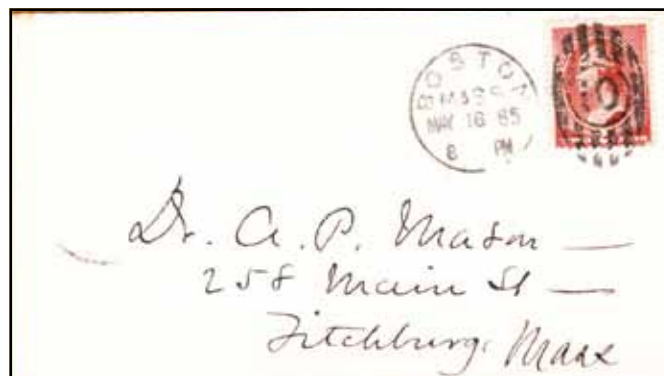 BOSTON
MASS.
MAY 16 85
8 PM
Dr. A. P. Mason —
258 Main St —
Fitchburg, Mass